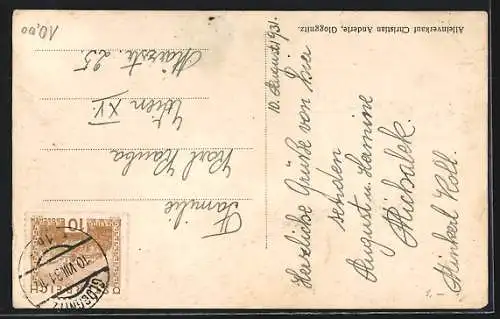 10,00
Alleinverkauf Christian Anderle, Gloggnitz.
10. August 1931.
Herzliche Grüße von hier
senden
August u. Hermine
Michalek.
Familie
Karl
Wien XV.
Märzstr. 25.
10
GLOGGNITZ
10.VIII.31